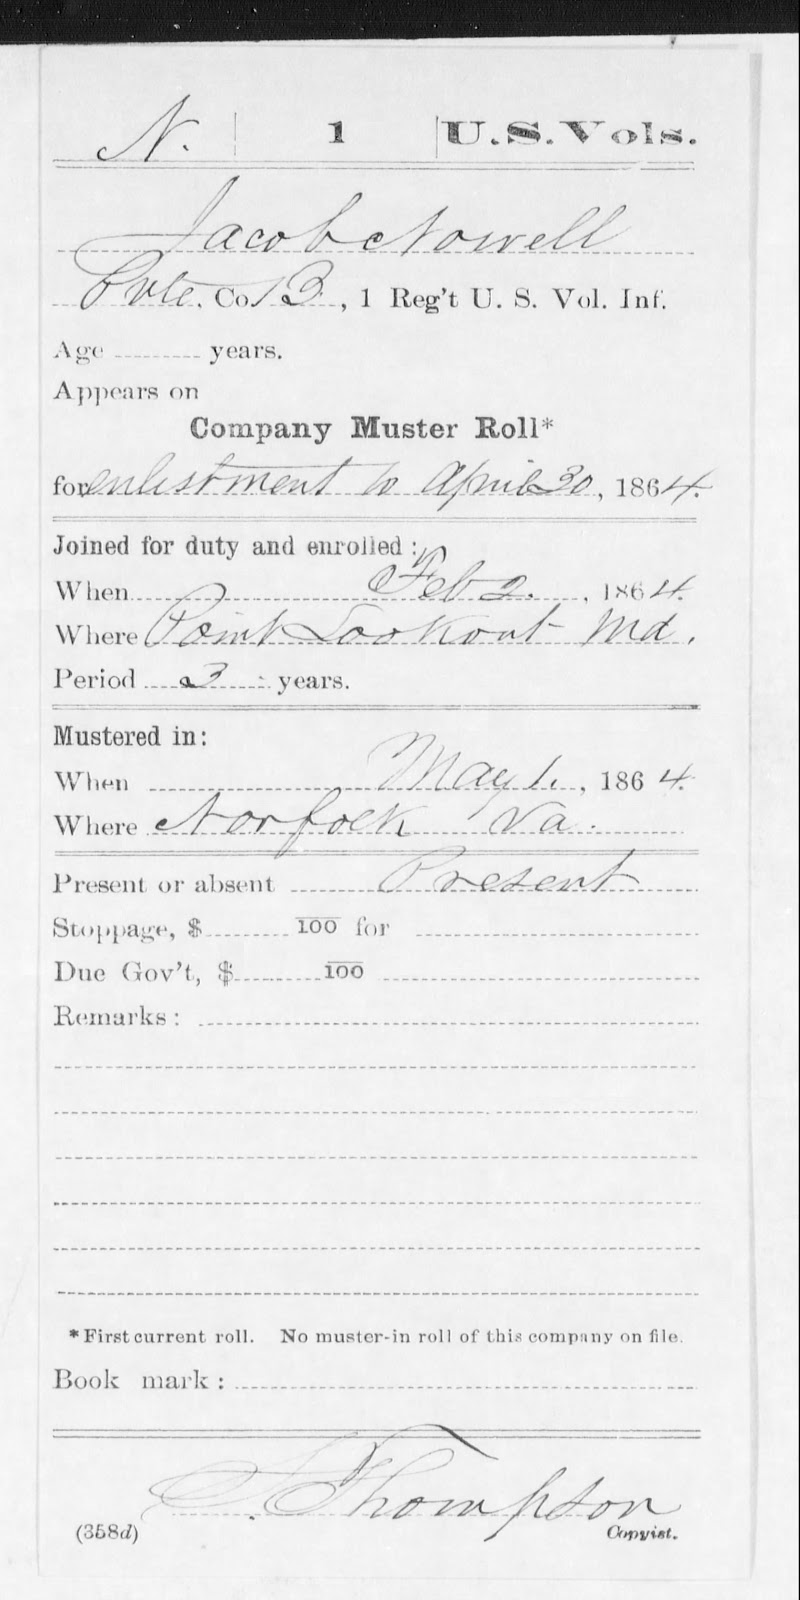 N. 1 U.S.Vols.
Jacob Nowell
Pvte. Co. B, 1 Reg't U. S. Vol. Inf.
Age years.
Appears on
Company Muster Roll*
for enlistment to April 30, 1864.
Joined for duty and enrolled:
When Feb 2, 1864.
Where Point Lookout Md.
Period 3 years.
Mustered in:
When May 1, 1864.
Where Norfolk Va.
Present or absent Present
Stoppage, $ 100 for
Due Gov't, $ 100
Remarks:
*First current roll. No muster-in roll of this company on file.
Book mark:
S. Thompson
(358d) Copyist.